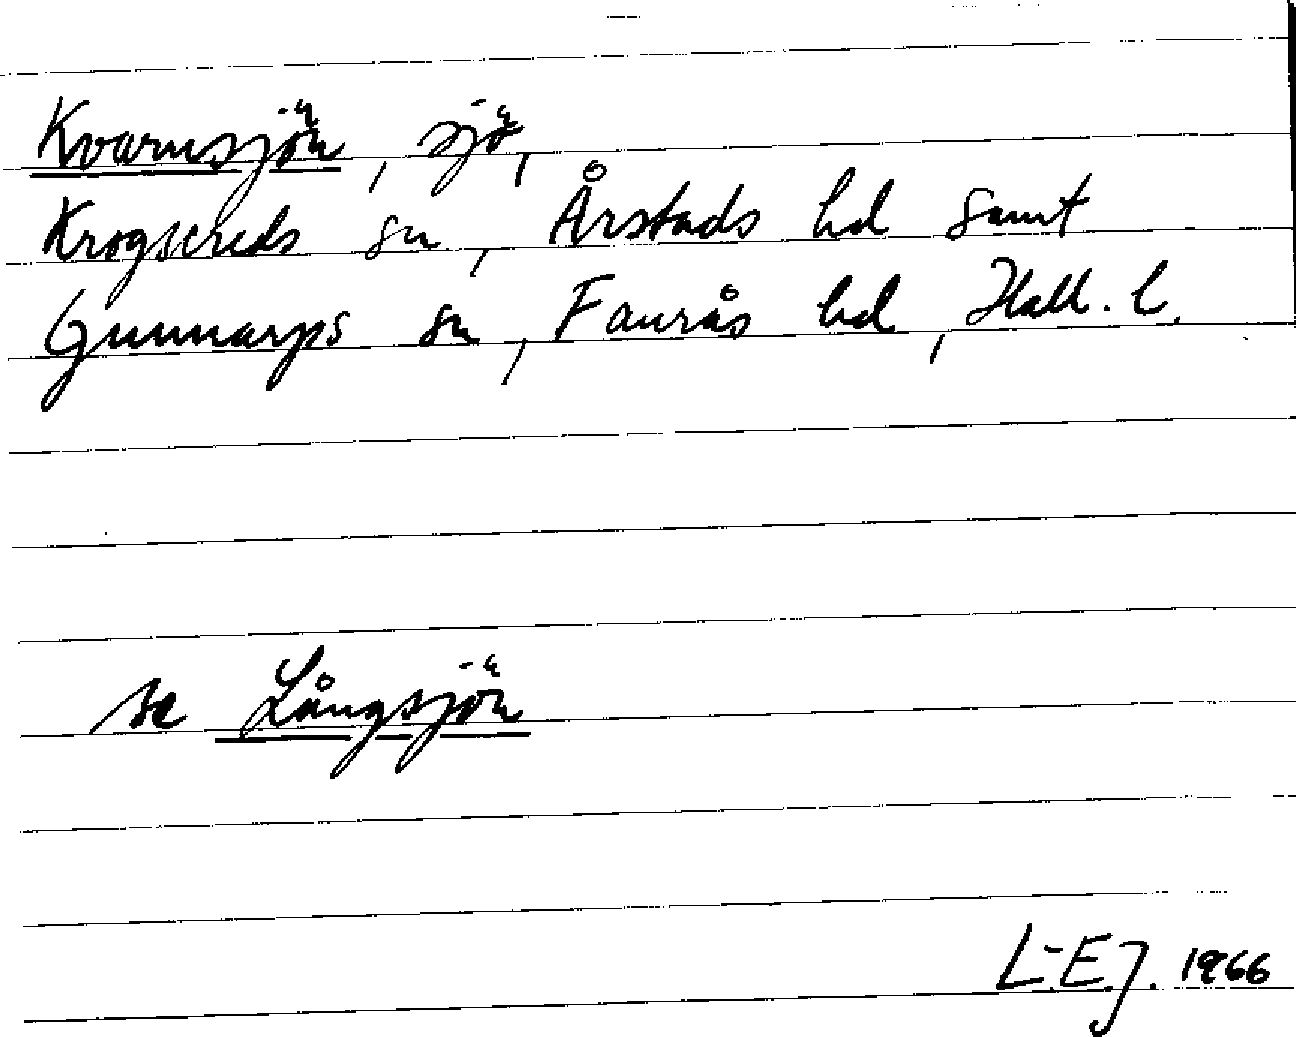 Kvarnsjön, sjö,
Krogsereds sn, Årstads hd samt
Gunnarps sn, Faurås hd, Hall. l.
se Långsjön
L-E.J. 1966